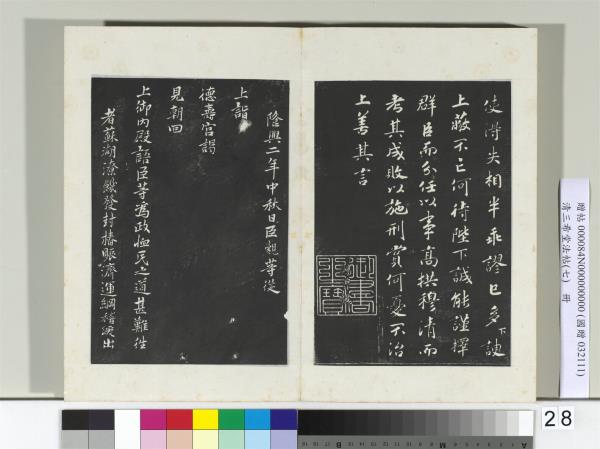 使得失相半乖謬已多下諛
上蔽不亡何待陛下誠能謹擇
群臣而分任以事高拱穆清而
考其成敗以施刑賞何憂不治
上善其言
御書之寶
隆興二年中秋日臣親等從
上詣
德壽宮謁
見朝回
上御內殿語臣等為政恤民之道甚難往
者蘇湖潦饑發封樁賑濟運綱稽出
贈帖 000084N000000000 (國贈 032111)
清三希堂法帖(七) 冊
28